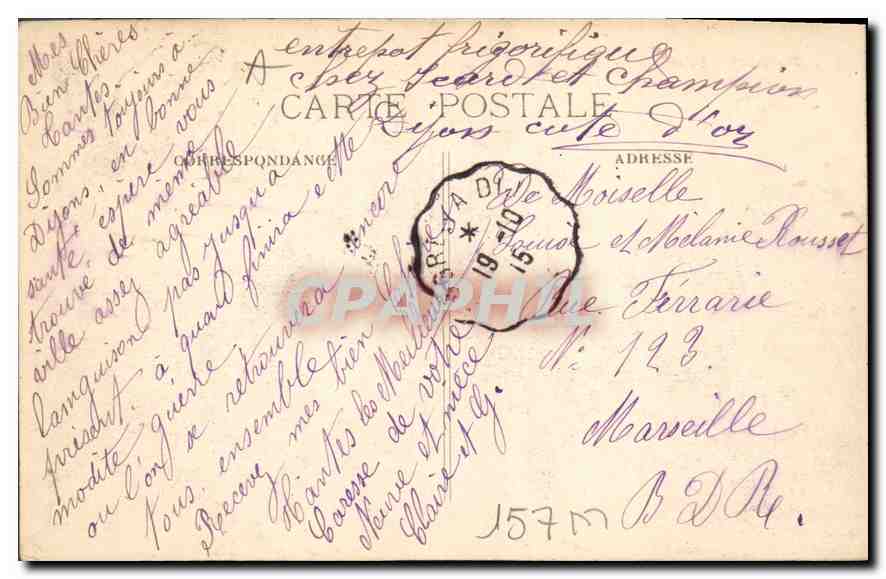 entrepot frigorifique
chez Icard et Champion
CARTE POSTALE
Dijons cote d'or
CORRESPONDANCE
ADRESSE
Mes
Bien Chères
Tantes.
Sommes toujours à
Dijons, en bonne
santé, espère vous
trouve de même
ville assez agréable
languison pas jusqu'a
présent. à quand finira cette
modite guerre,
ou l'on se retrouvera encore
tous ensemble
Recevez mes bien Chère
Tantes les Meilleure
Caresse de votre
Neuve et nièce
Claire et G.
GRAY A DI
*
19 -10
15
De Moiselle
Louise et Mélanie Rousset
Rue Férrarie
N° 123
Marseille
B D R.
157 m
CPAPHIL